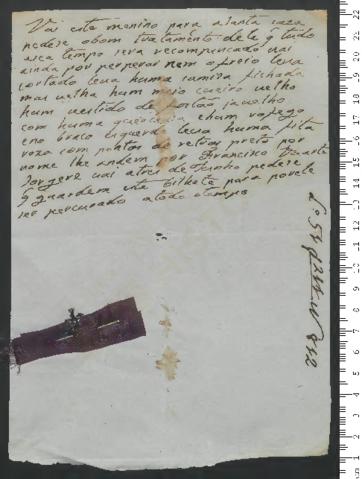 Vai este menino para a santa caza
pedese obom tratamento dele q̃ tudo
esca tempo sera recompencado vai
ainda por perparar nem o freio leva
cortado leva huma camiza fichada
mas velha hum meio coeiro velho
hum vestido de já velho
com huma e hum
eno braco esquerdo leva huma fita
roxa com pontos de retros preto por
nome lhe andem por Francisco Duarte
Jorge vai atres de Junho pedese
q guardem este bilhete para porele
ser percurado atodo otempo
Lº 54 842